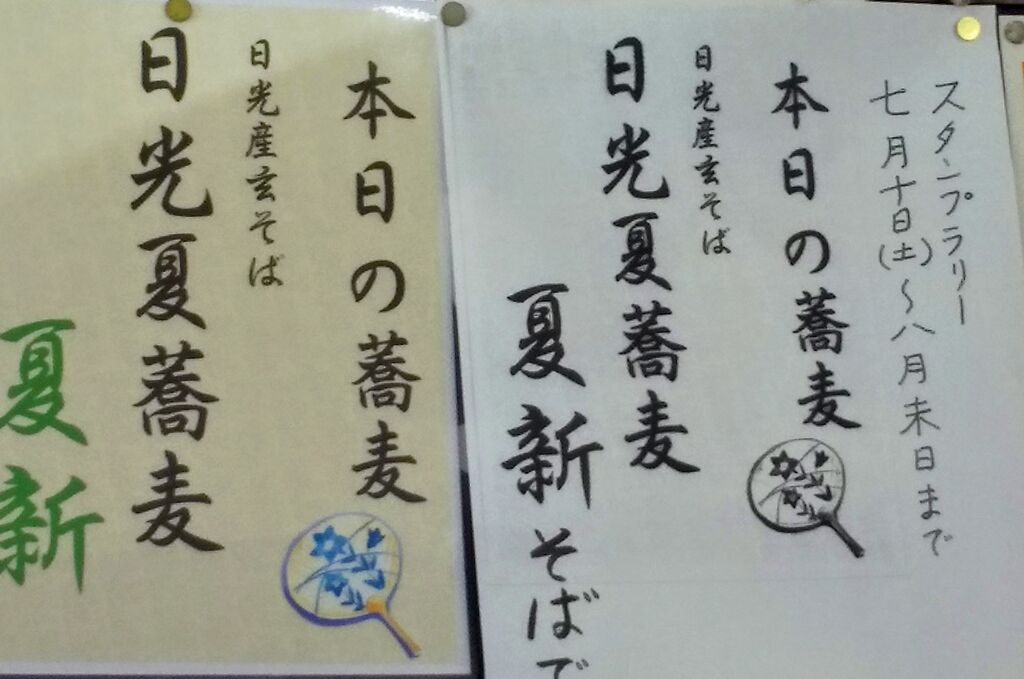 スタンプラリー
七月十日(土)〜八月末日まで
本日の蕎麦
日光産玄そば
日光夏蕎麦
夏新そばで
本日の蕎麦
日光産玄そば
日光夏蕎麦
夏新